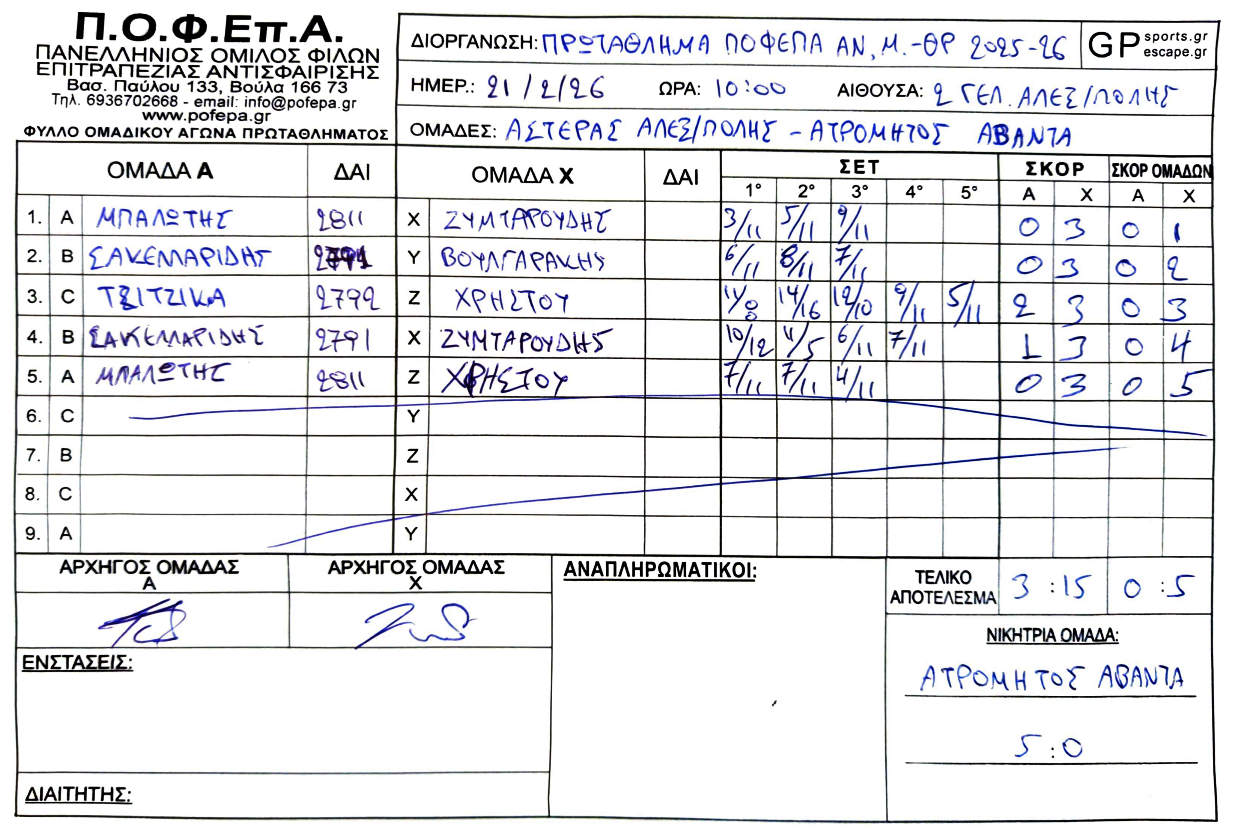 Π.Ο.Φ.Επ.Α.
ΠΑΝΕΛΛΗΝΙΟΣ ΟΜΙΛΟΣ ΦΙΛΩΝ
ΕΠΙΤΡΑΠΕΖΙΑΣ ΑΝΤΙΣΦΑΙΡΙΣΗΣ
Βασ. Παύλου 133, Βούλα 166 73
Τηλ. 6936702668 - email: info@pofepa.gr
www.pofepa.gr
ΦΥΛΛΟ ΟΜΑΔΙΚΟΥ ΑΓΩΝΑ ΠΡΩΤΑΘΛΗΜΑΤΟΣ
ΔΙΟΡΓΑΝΩΣΗ: ΠΡΩΤΑΘΛΗΜΑ ΠΟΦΕΠΑ ΑΝ, Μ.-ΘΡ 2025-26
GP sports.gr escape.gr
ΗΜΕΡ.: 21/2/26 ΩΡΑ: 10:00 ΑΙΘΟΥΣΑ: 2 ΓΕΛ. ΑΛΕΞ/ΠΟΛΗΣ
ΟΜΑΔΕΣ: ΑΣΤΕΡΑΣ ΑΛΕΞ/ΠΟΛΗΣ - ΑΤΡΟΜΗΤΟΣ ΑΒΑΝΤΑ
ΟΜΑΔΑ Α ΔΑΙ ΟΜΑΔΑ Χ ΔΑΙ ΣΕΤ ΣΚΟΡ ΣΚΟΡ ΟΜΑΔΩΝ
1° 2° 3° 4° 5° Α Χ Α Χ
1. A ΜΠΑΛΩΤΗΣ 2811 X ΖΥΜΤΑΡΟΥΔΗΣ 3/11 5/11 9/11 0 3 0 1
2. B ΣΑΚΕΛΛΑΡΙΔΗΣ 2791 Y ΒΟΥΛΓΑΡΑΚΗΣ 6/11 8/11 7/11 0 3 0 2
3. C ΤΖΙΤΖΙΚΑ 2792 Z ΧΡΗΣΤΟΥ 11/8 14/16 12/10 9/11 5/11 2 3 0 3
4. B ΣΑΚΕΛΛΑΡΙΔΗΣ 2791 X ΖΥΜΤΑΡΟΥΔΗΣ 10/12 11/5 6/11 7/11 1 3 0 4
5. A ΜΠΑΛΩΤΗΣ 2811 Z ΧΡΗΣΤΟΥ 7/11 7/11 4/11 0 3 0 5
6. C Y
7. B Z
8. C X
9. A Y
ΑΡΧΗΓΟΣ ΟΜΑΔΑΣ Α ΑΡΧΗΓΟΣ ΟΜΑΔΑΣ Χ ΑΝΑΠΛΗΡΩΜΑΤΙΚΟΙ:
ΤΕΛΙΚΟ ΑΠΟΤΕΛΕΣΜΑ 3:15 0:5
ΝΙΚΗΤΡΙΑ ΟΜΑΔΑ:
ΑΤΡΟΜΗΤΟΣ ΑΒΑΝΤΑ
5:0
ΕΝΣΤΑΣΕΙΣ:
ΔΙΑΙΤΗΤΗΣ: